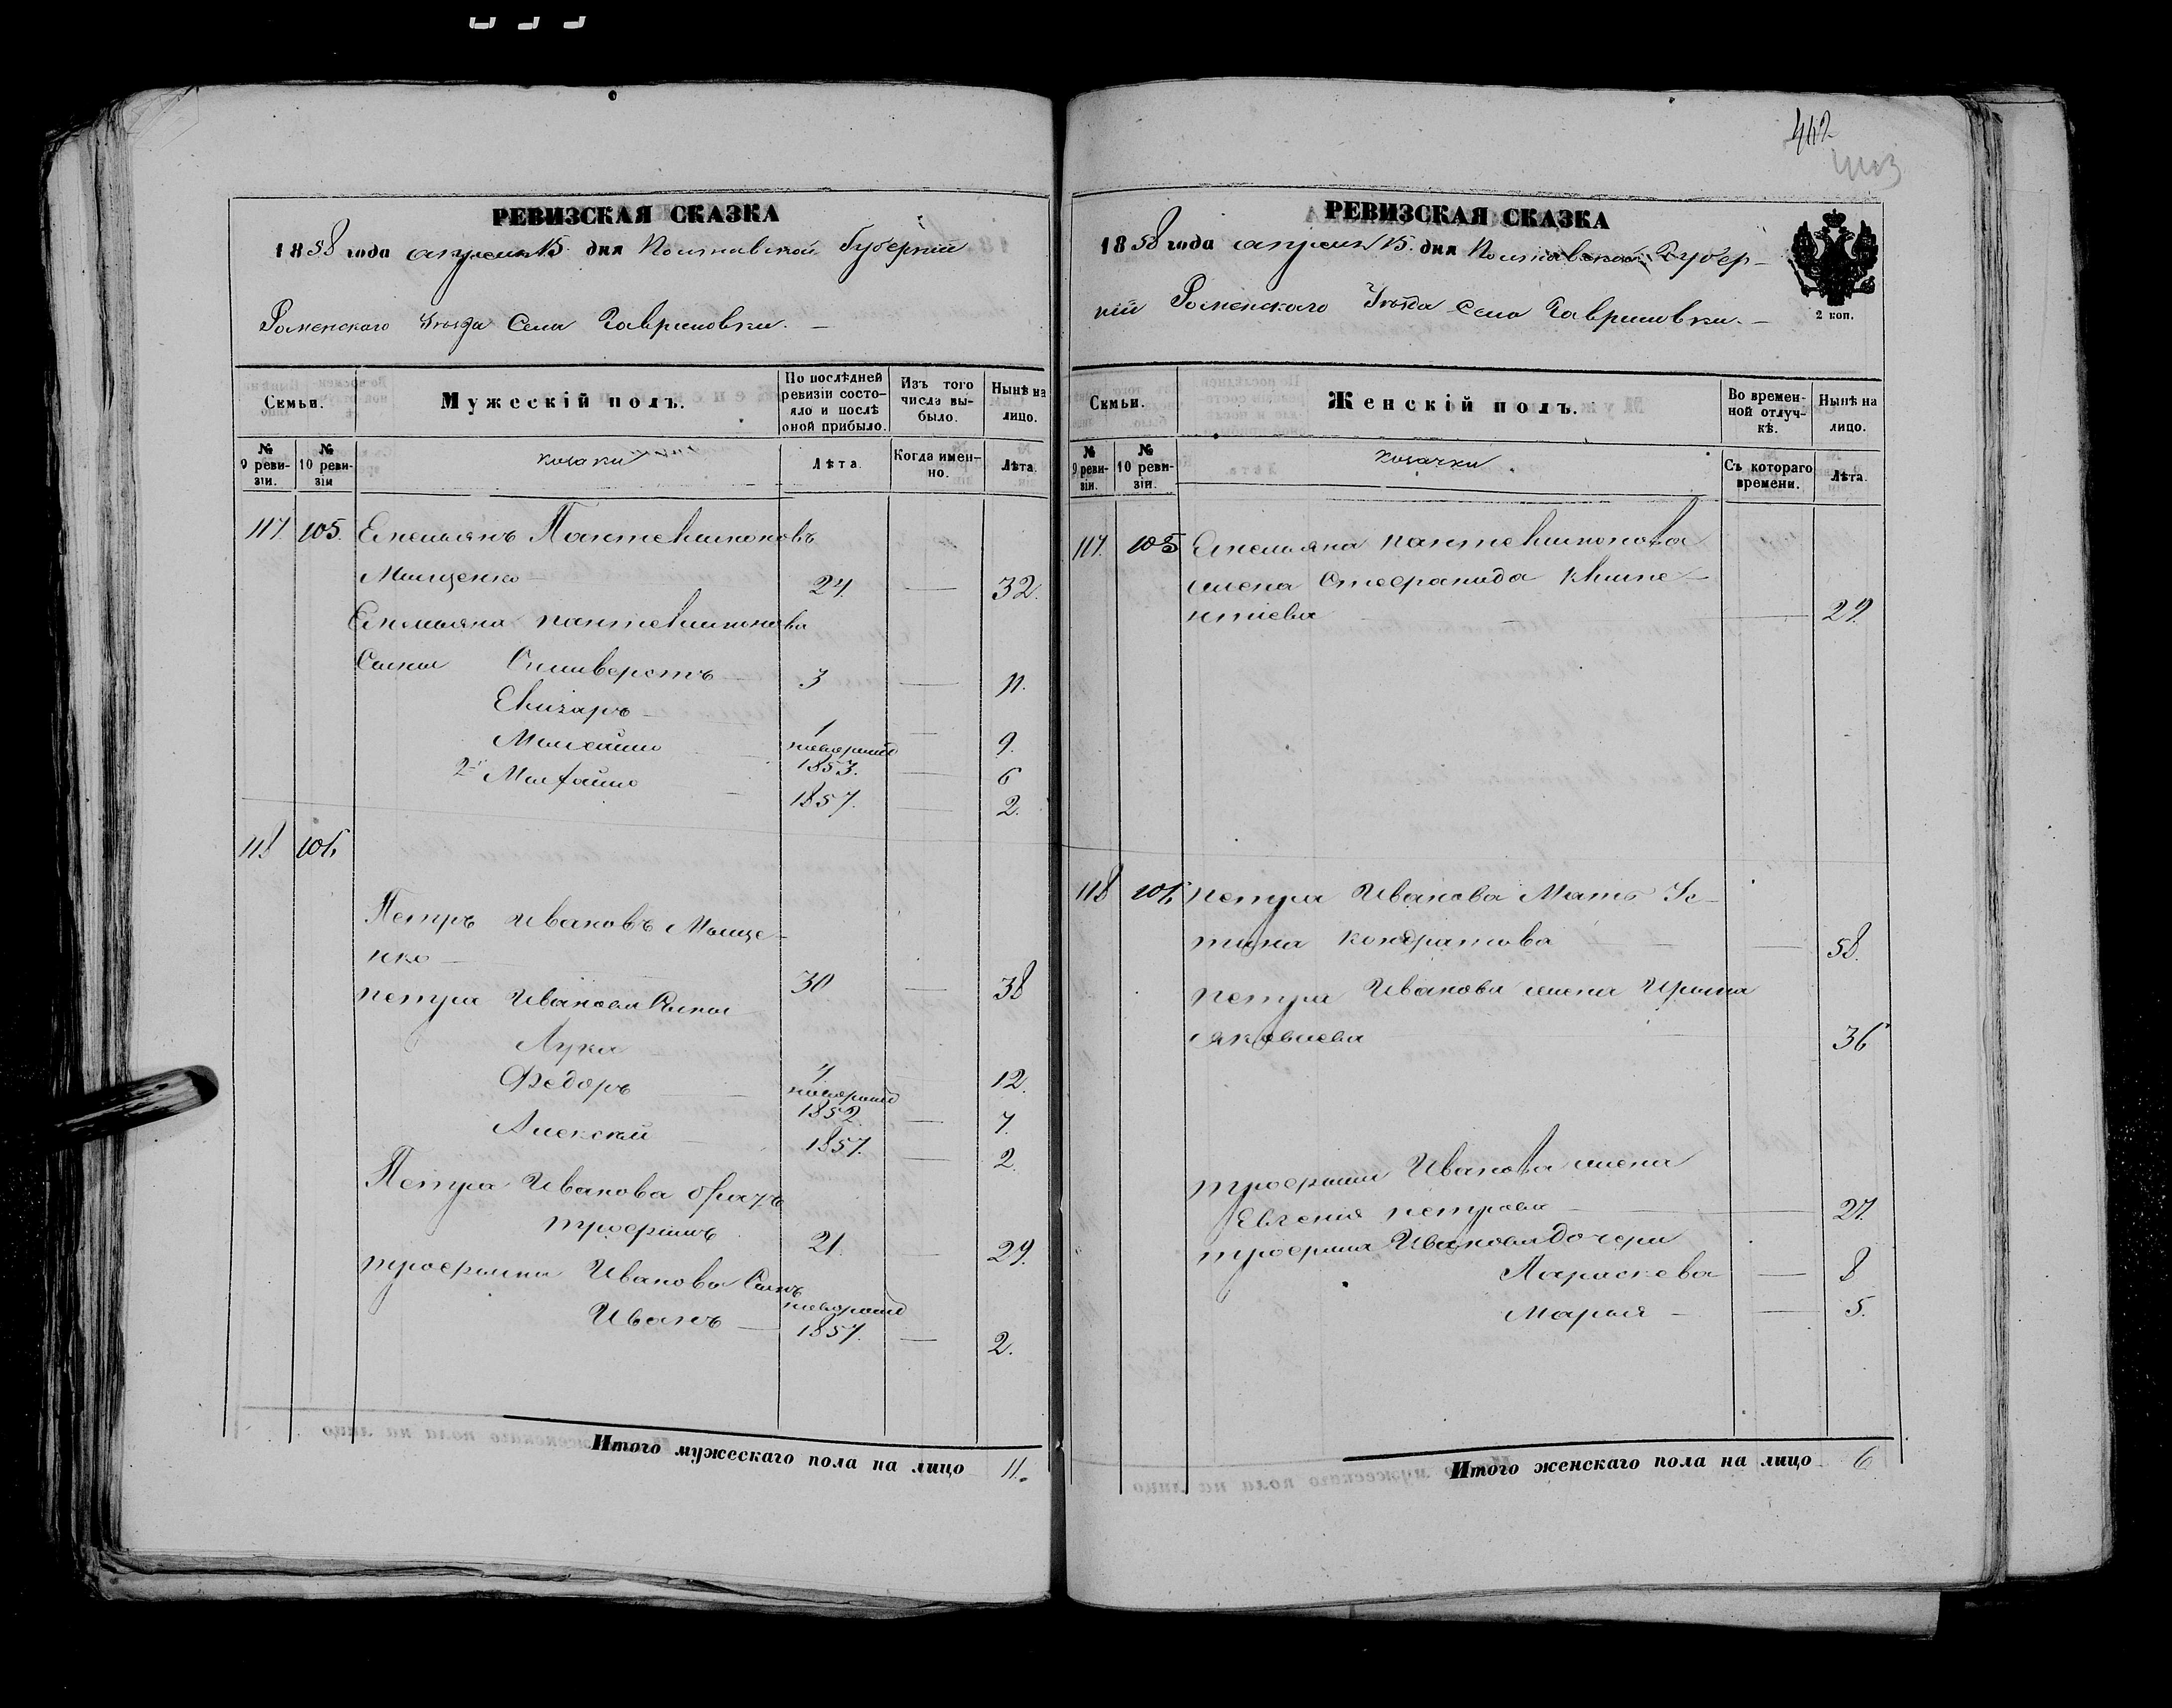 РЕВИЗСКАЯ СКАЗКА
1858 года апреля 15. дня Полтавской Губерніи
Роменскаго Уезда Села Гавриловки. —
Семьи.
Мужескій полъ.
По послѣдней ревизіи состояло и послѣ оной прибыло.
Изъ того числа выбыло.
Нынѣ на лицо.
№ 9 ревизіи.
№ 10 ревизіи
козаки
Лѣта.
Когда именно.
Лѣта.
117. 105. Емельянъ Пантелимоновъ
Мищенко 24. — 32.
Емельяна пантелимонова
Сыны Силиверстъ 3 — 11.
Елизаръ 1 — 9.
Михайло новорожд 1853. — 6
2й Михайло 1857. — 2.
118 106
Петръ Ивановъ Мище-
нко — 30 — 38
петра Иванова Сыны
Лука 4 12.
Федоръ новорожд 1852. — 7.
Алексей 1857. — 2.
Петра Иванова братъ
трофимъ 21. — 29.
трофима Иванова Сынъ
Иванъ — новорожд 1857. — 2.
Итого мужескаго пола на лицо 11.
402
РЕВИЗСКАЯ СКАЗКА
1858 года апреля 15. дня Полтавской Губер-
ніи Роменскаго Уезда Села Гавриловки. —
2 коп.
Семьи.
Женскій полъ.
Во временной отлучкѣ.
Нынѣ на лицо.
№ 9 ревизіи.
№ 10 ревизіи.
козачки
Съ котораго времени.
Лѣта.
117. 105 Емельяна пантелимонова
жена Стефанида Климе-
нтіева — 29.
118 106 петра Иванова Мать Ус-
тина кондратова — 58.
петра Иванова жена Ирина
яковлева 36
трофима Иванова жена
Евгения петрова — 27.
трофима Иванова дочери
Параскева — 8
Марья — 5.
Итого женскаго пола на лицо 6